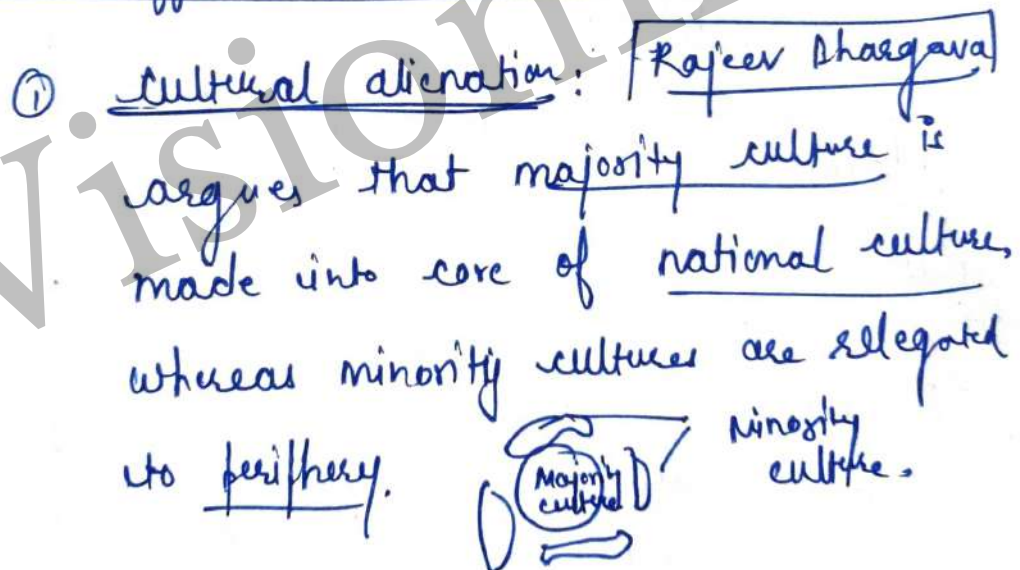 ① Cultural alienation: Rajeev Bhargava
argues that majority culture is
made into core of national culture,
whereas minority cultures are relegated
to periphery.
Majority
culture
Minority
culture.
Vision